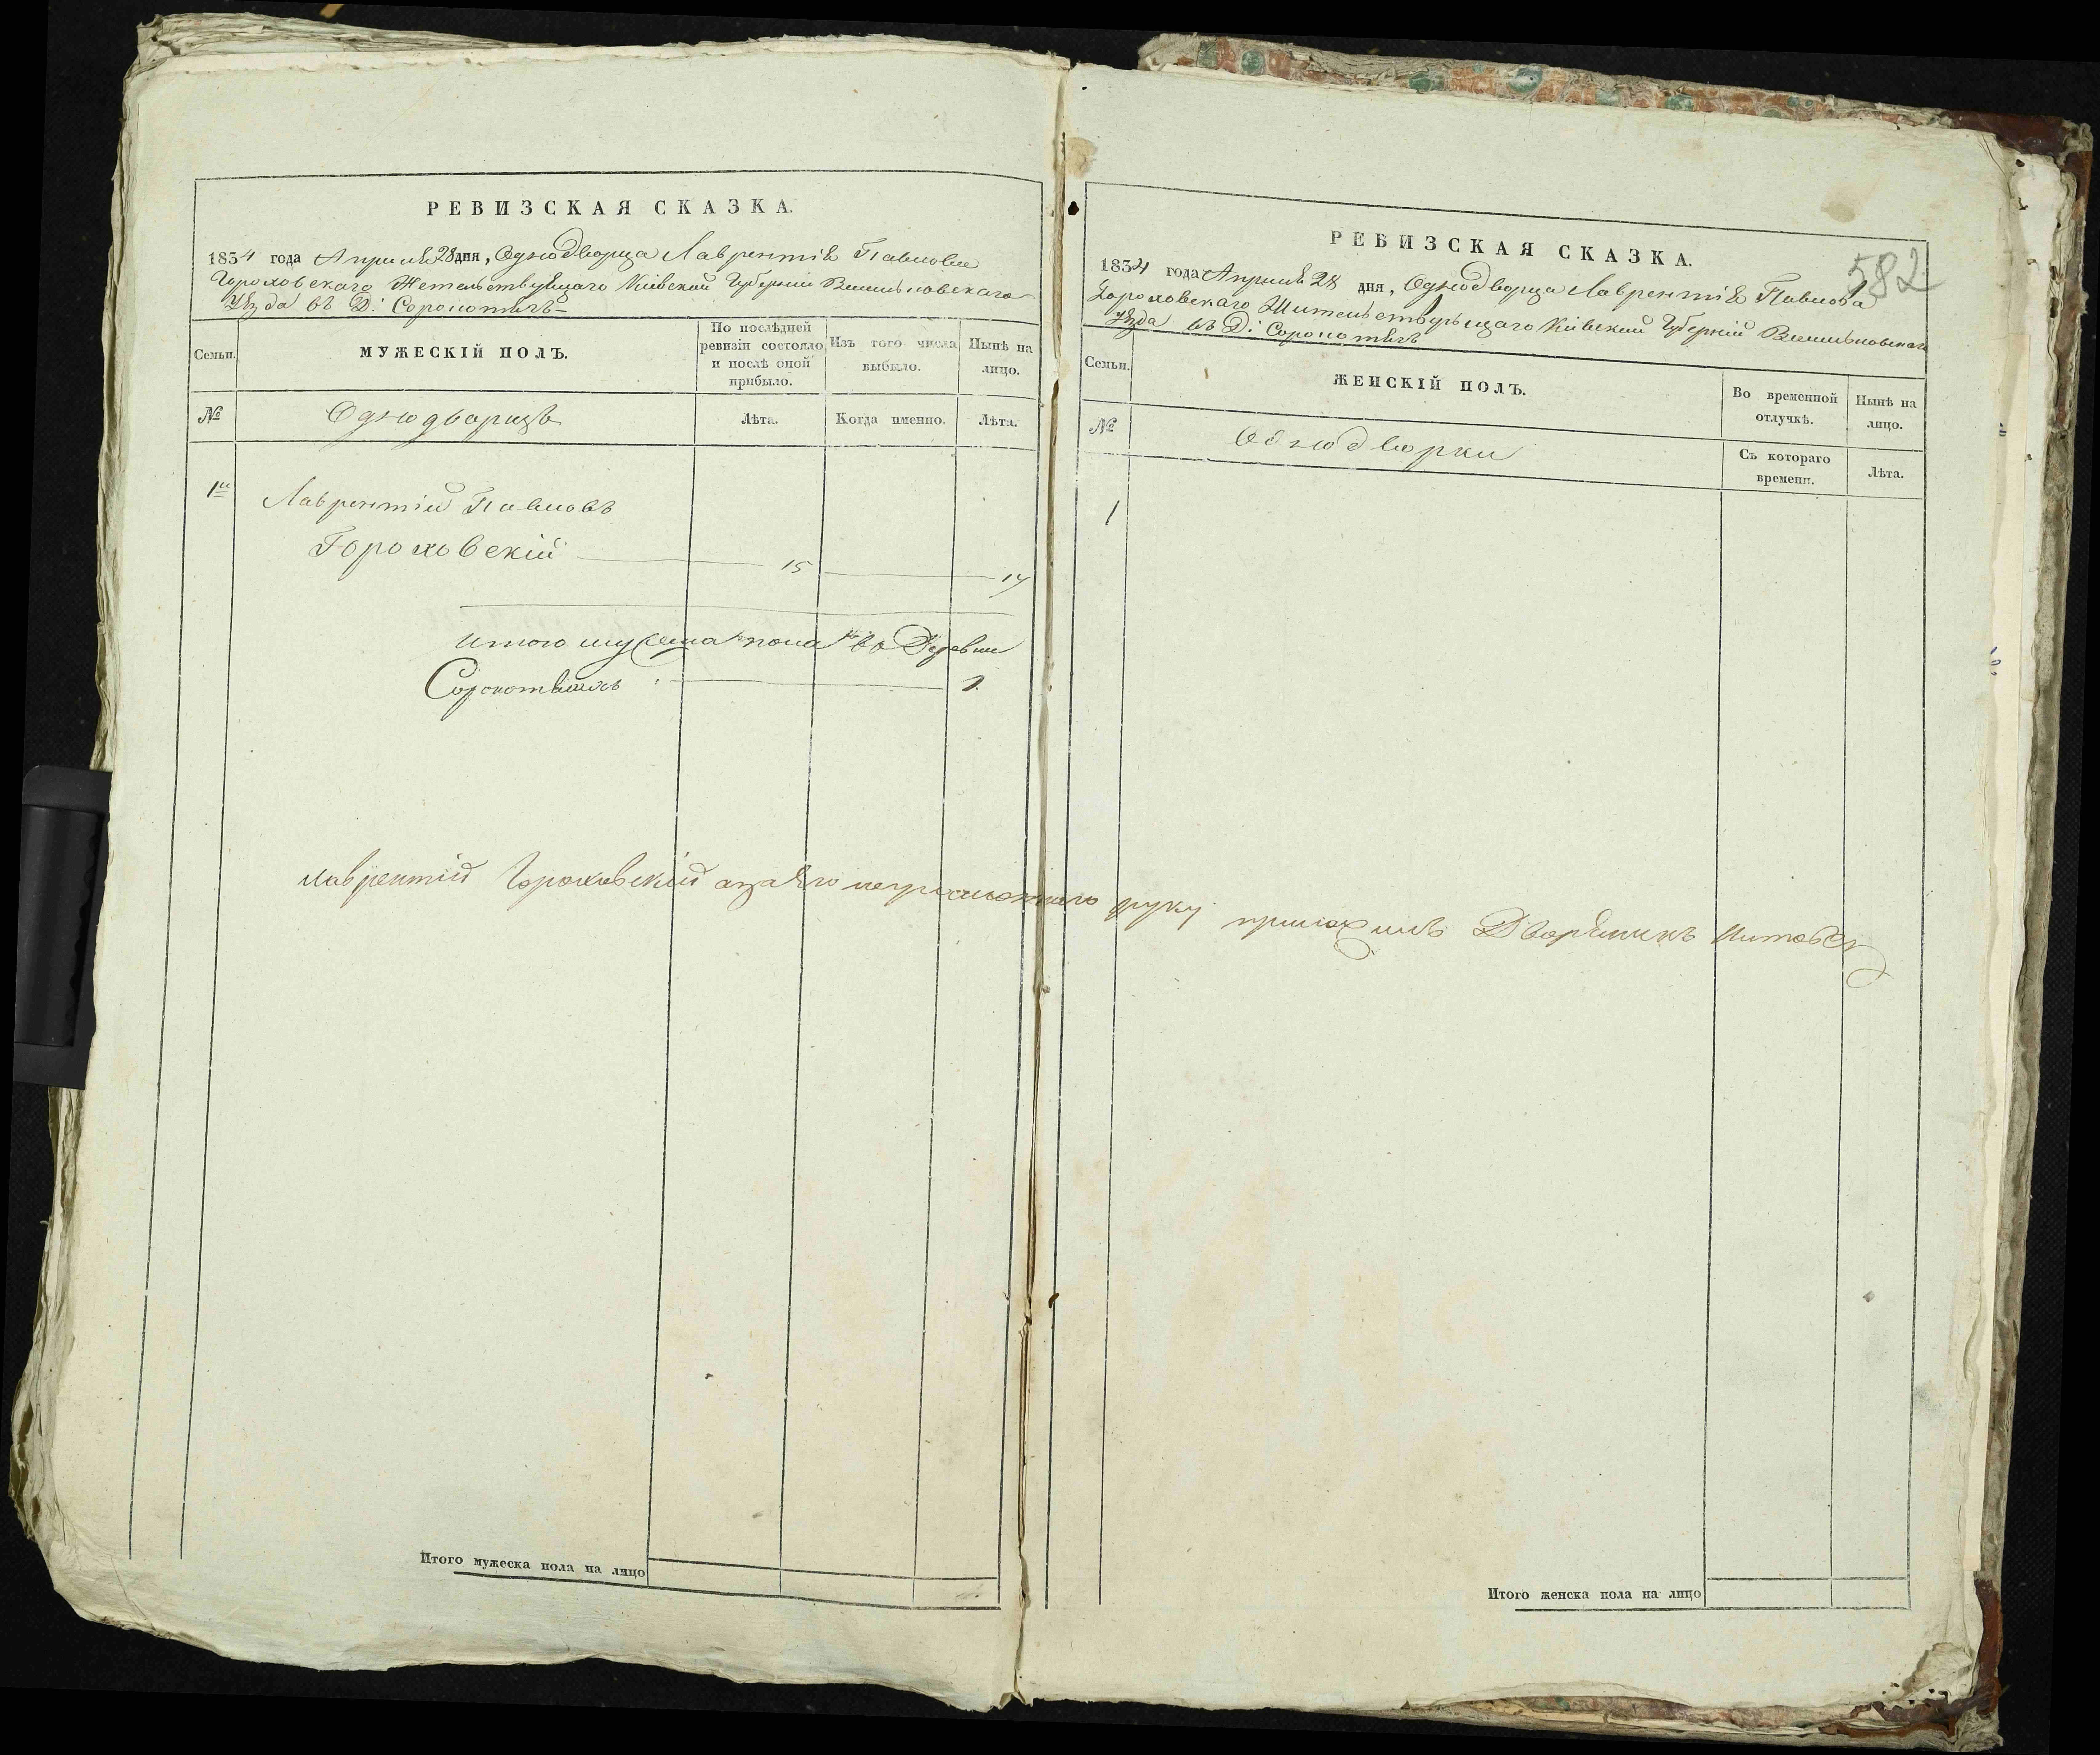 РЕВИЗСКАЯ СКАЗКА.
1834 года Апреля 28 дня, Однодворца Лаврентія Павлова
Гороховскаго Жетельствующаго Кіевской Губерніи Васильковскаго
Уѣзда въ Д:
Семьи.
МУЖЕСКІЙ ПОЛЪ.
По послѣдней ревизіи состояло и послѣ оной прибыло.
Изъ того числа выбыло.
Нынѣ на лицо.
№
Однодворцы
Лѣта.
Когда именно.
Лѣта.
1й
Лаврентій Павловъ
Гороховскій 15
Итого мужеска пола въ Деревни
1
Лаврентій Гороховскій а за его неграмотного руку приложилъ Дворянинъ
Итого мужеска пола на лицо
582
РЕВИЗСКАЯ СКАЗКА.
1834 года Апреля 28 дня, Однодворца Лаврентія Павлова
Гороховскаго Жительствующаго Кіевской Губерніи Васильковскаго
Уѣзда въ Д:
Семьи.
ЖЕНСКІЙ ПОЛЪ.
Во временной отлучкѣ.
Нынѣ на лицо.
№
Однодворки
Съ котораго времени.
Лѣта.
1
Итого женска пола на лицо